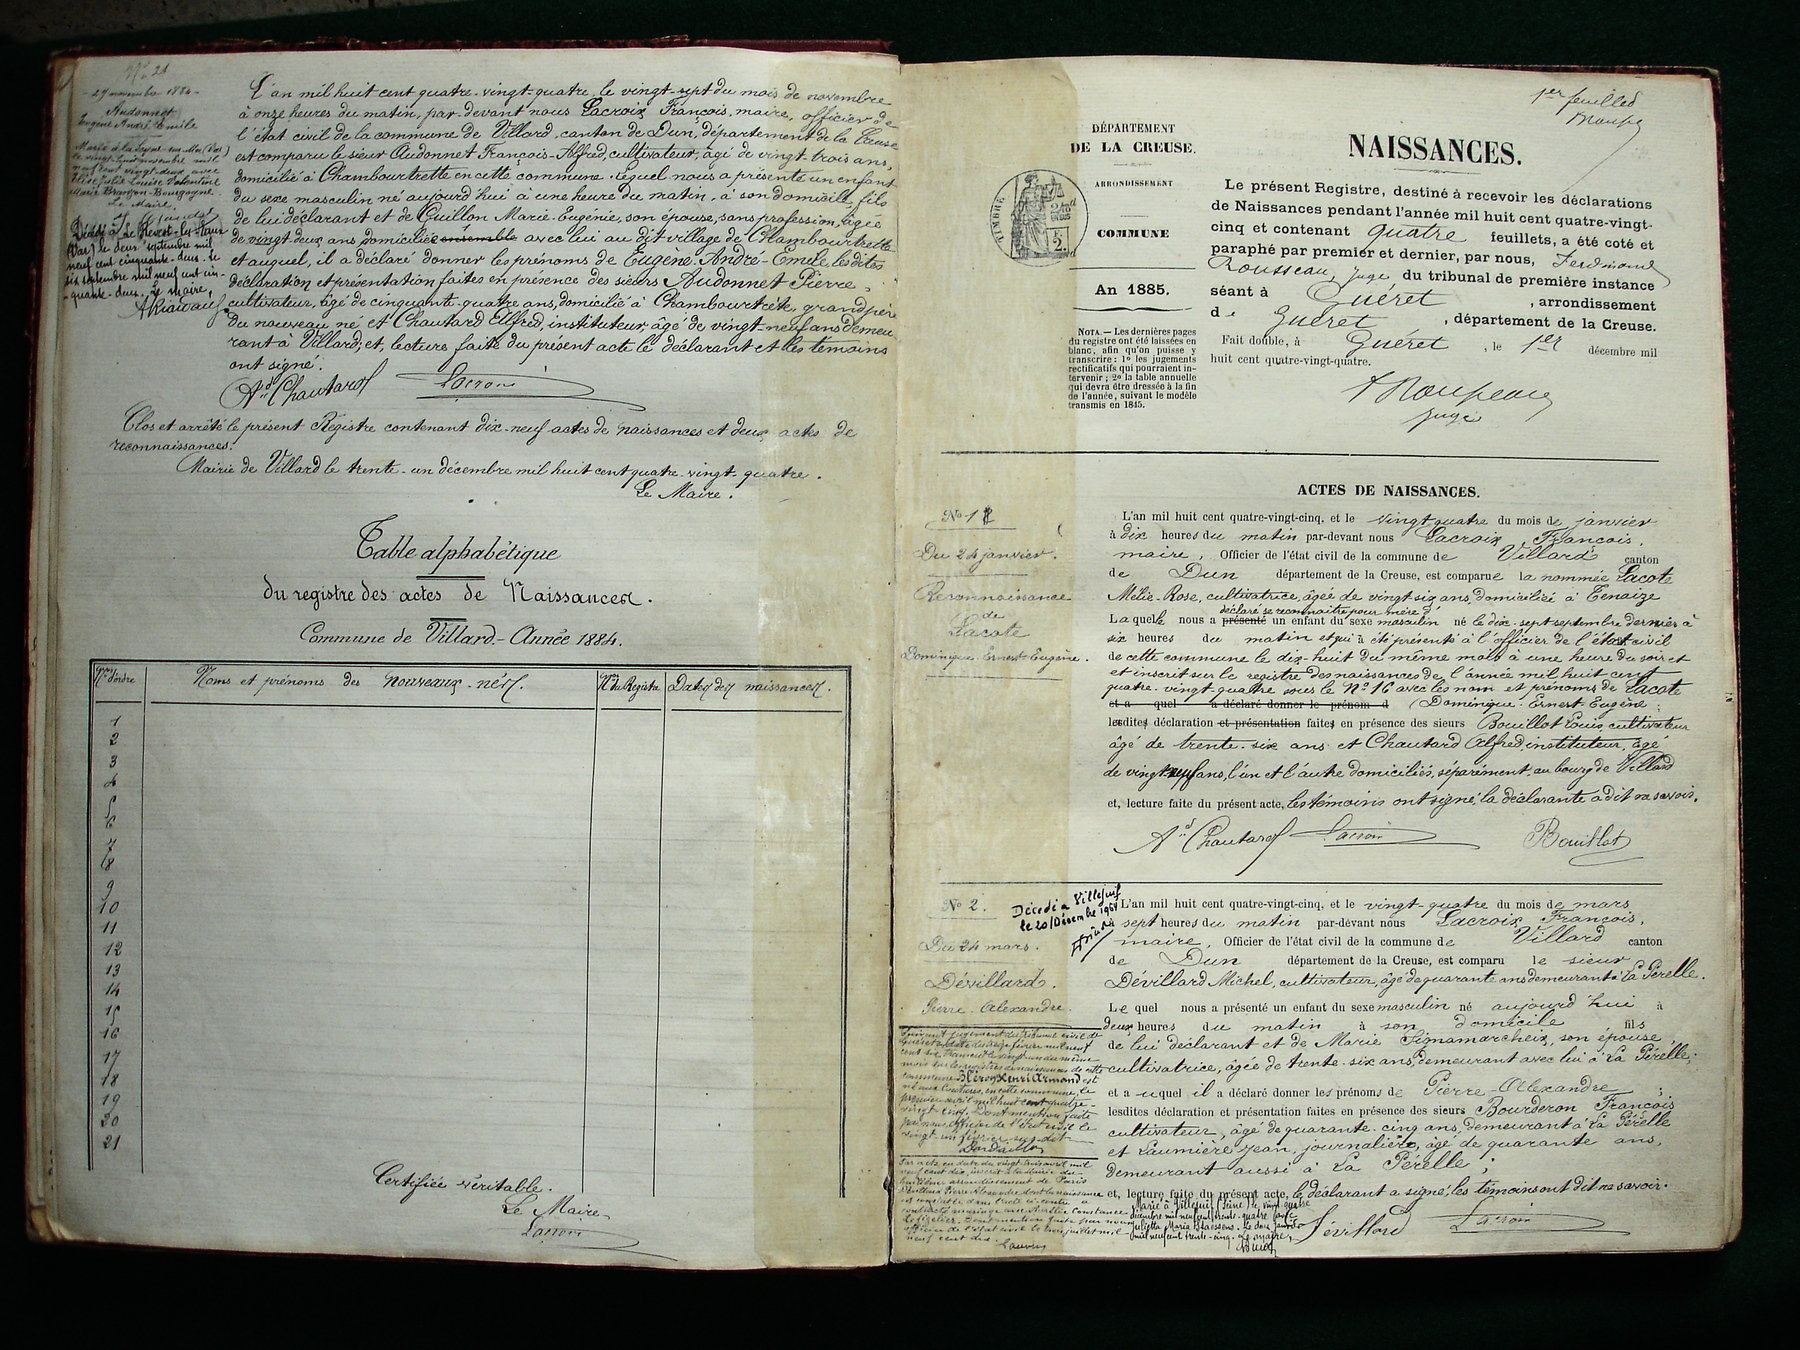 N° 21
27 novembre 1884
Audonnet
Eugène André Emile
Marié à la Seyne-sur-Mer (Var)
le vingt huit novembre mil
neuf cent vingt-deux avec
Louise Valentine
Marie
Le Maire,
Décédé à Le Revest-les-Eaux
(Var) le deux septembre mil
neuf cent cinquante-deux. Le
six septembre mil neuf cent cin-
-quante-deux. Le maire,
L'an mil huit cent quatre-vingt-quatre, le vingt-sept du mois de novembre
à onze heures du matin, par-devant nous Lacroix François, maire, officier de
l'état civil de la commune de Villard, canton de Dun, département de la Creuse
est comparu le sieur Audonnet François-Alfred, cultivateur, âgé de vingt trois ans,
domicilié à Chambourtrette en cette commune lequel nous a présenté un enfant
du sexe masculin né aujourd'hui à une heure du matin, à son domicile, fils
de lui déclarant et de Guillon Marie-Eugénie, son épouse, sans profession, âgée
de vingt deux ans domiciliée ensemble avec lui au dit village de Chambourtrette
et auquel, il a déclaré donner les prénoms de Eugène-André-Emile, les dites
déclaration et présentation faites en présence des sieurs Audonnet Pierre,
cultivateur, âgé de cinquante-quatre ans, domicilié à Chambourtrette, grand père
du nouveau né et Chautard Alfred, instituteur, âgé de vingt-neuf ans demeu
rant à Villard, et, lecture faite du présent acte le déclarant et les témoins
ont signé.
Ad Chautard Lacroix
Clos et arrêté le présent Registre contenant dix-neuf actes de naissances et deux actes de
reconnaissances.
Mairie de Villard le trente-un décembre mil huit cent quatre-vingt-quatre.
Le Maire.
Table alphabétique
du registre des actes de Naissances.
Commune de Villard-Année 1884.
Nos d'ordre
Noms et prénoms des nouveaux-nés.
Nos du Registre
Dates des naissances.
1
2
3
4
5
6
7
8
9
10
11
12
13
14
15
16
17
18
19
20
21
Certifiée véritable.
Le Maire
Lacroix
1er feuillet
Rousseau
DÉPARTEMENT
DE LA CREUSE.
ARRONDISSEMENT
COMMUNE
An 1885.
TIMBRE
NOTA. — Les dernières pages
du registre ont été laissées en
blanc, afin qu'on puisse y
transcrire : 1° les jugements
rectificatifs qui pourraient in-
tervenir ; 2° la table annuelle
qui devra être dressée à la fin
de l'année, suivant le modèle
transmis en 1845.
NAISSANCES.
Le présent Registre, destiné à recevoir les déclarations
de Naissances pendant l'année mil huit cent quatre-vingt-
cinq et contenant quatre feuillets, a été coté et
paraphé par premier et dernier, par nous, Ferdinand
Rousseau, juge du tribunal de première instance
séant à Guéret, arrondissement
de Guéret, département de la Creuse.
Fait double, à Guéret, le 1er décembre mil
huit cent quatre-vingt-quatre.
F Rousseau
juge
ACTES DE NAISSANCES.
N° 1
Du 24 janvier.
Reconnaissance
de
Lacote
Dominique-Ernest-Eugène.
L'an mil huit cent quatre-vingt-cinq, et le vingt quatre du mois de janvier
à dix heures du matin par-devant nous Lacroix François,
maire, Officier de l'état civil de la commune de Villard canton
de Dun département de la Creuse, est comparue la nommée Lacote
Mélie-Rose, cultivatrice, âgée de vingt six ans, domiciliée à Tenaize
déclaré se reconnaître pour mère d'
Laquelle nous a présenté un enfant du sexe masculin né le dix-sept septembre dernier à
six heures du matin et qui a été présenté à l'officier de l'état civil
de cette commune le dix-huit du même mois à une heure du soir et
et inscrit sur le registre des naissances de l'année mil huit cent
quatre-vingt quatre sous le N° 16 avec les nom et prénoms de Lacote
et a quel a déclaré donner le prénom d (Dominique-Ernest-Eugène ;
lesdites déclaration et présentation faites en présence des sieurs Bouillot Louis, cultivateur
âgé de trente-six ans et Chautard Alfred, instituteur, âgé
de vingt neuf ans, l'un et l'autre domiciliés, séparément, au bourg de Villard
et, lecture faite du présent acte, les témoins ont signé, la déclarante a dit ne savoir.
Ad Chautard Lacroix Bouillot
N° 2.
Décédé à Villejuif
le 20 Décembre 1964
Du 24 mars.
Dévillard.
Pierre-Alexandre.
L'an mil huit cent quatre-vingt-cinq, et le vingt-quatre du mois de mars
sept heures du matin par-devant nous Lacroix François,
maire, Officier de l'état civil de la commune de Villard canton
de Dun département de la Creuse, est comparu le sieur
Dévillard Michel, cultivateur, âgé de quarante ans demeurant à La Pérelle.
Le quel nous a présenté un enfant du sexe masculin né aujourd'hui à
deux heures du matin à son domicile fils
de lui déclarant et de Marie Signamarcheix, son épouse,
cultivatrice, âgée de trente-six ans, demeurant avec lui à La Pérelle ;
et auquel il a déclaré donner les prénoms de Pierre-Alexandre
lesdites déclaration et présentation faites en présence des sieurs Bourderon François
cultivateur, âgé de quarante-cinq ans, demeurant à La Pérelle
et Laumière Jean, journalier, âgé de quarante ans,
demeurant aussi à La Pérelle ;
et, lecture faite du présent acte, le déclarant a signé, les témoins ont dit ne savoir.
Suivant jugement du tribunal civil de
Guéret en date du seize février mil neuf
cent six, transcrit le vingt-un du même
mois sur les registres de naissances de cette
commune Henri Armand est
né aux en cette commune, le
premier avril mil huit cent quatre
vingt-cinq. Dont mention faite
par nous, officier de l'état civil le
vingt-un février sus-dit.
Par acte, en date du vingt-huit avril mil
neuf cent dix, inscrit à la Mairie du
arrondissement de Paris
Dévillard Pierre Alexandre dont la naissance
est constatée dans l'acte ci-contre a
contracté mariage avec Constance
Dont mention faite par nous
officier de l'état civil le juillet mil
neuf cent dix.
Marié à Villejuif (Seine) le vingt-quatre
décembre mil neuf cent trente-quatre avec
Juliette Maria le deux janvier
mil neuf cent trente-cinq. Le maire,
Dévillard Lacroix